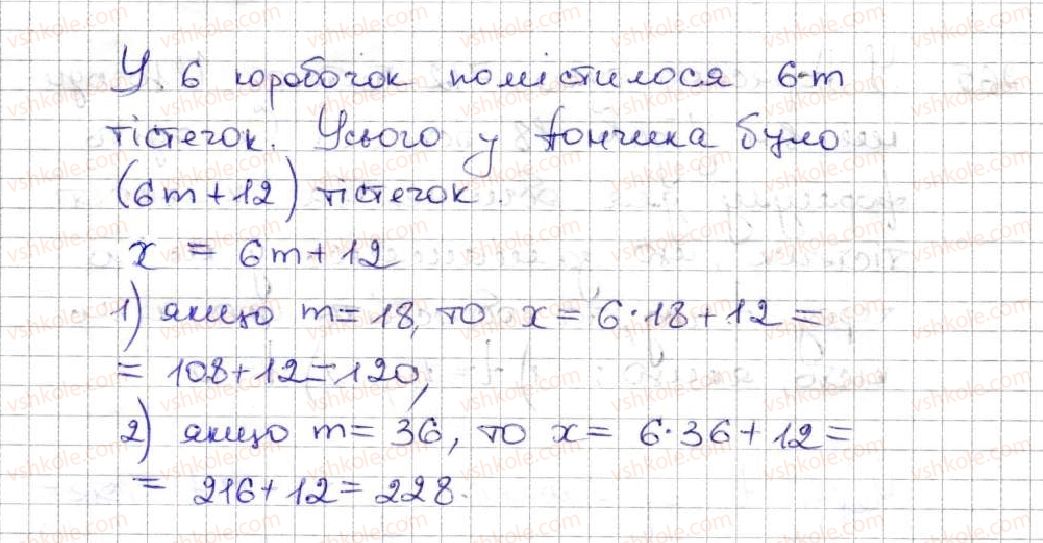 У 6 коробочок помістилося 6·m
тістечок. Усього у Тончика було
(6m+12) тістечок.
x = 6m+12
1) якщо m=18, то x=6·18+12=
=108+12=120,
2) якщо m=36, то x=6·36+12=
=216+12=228.